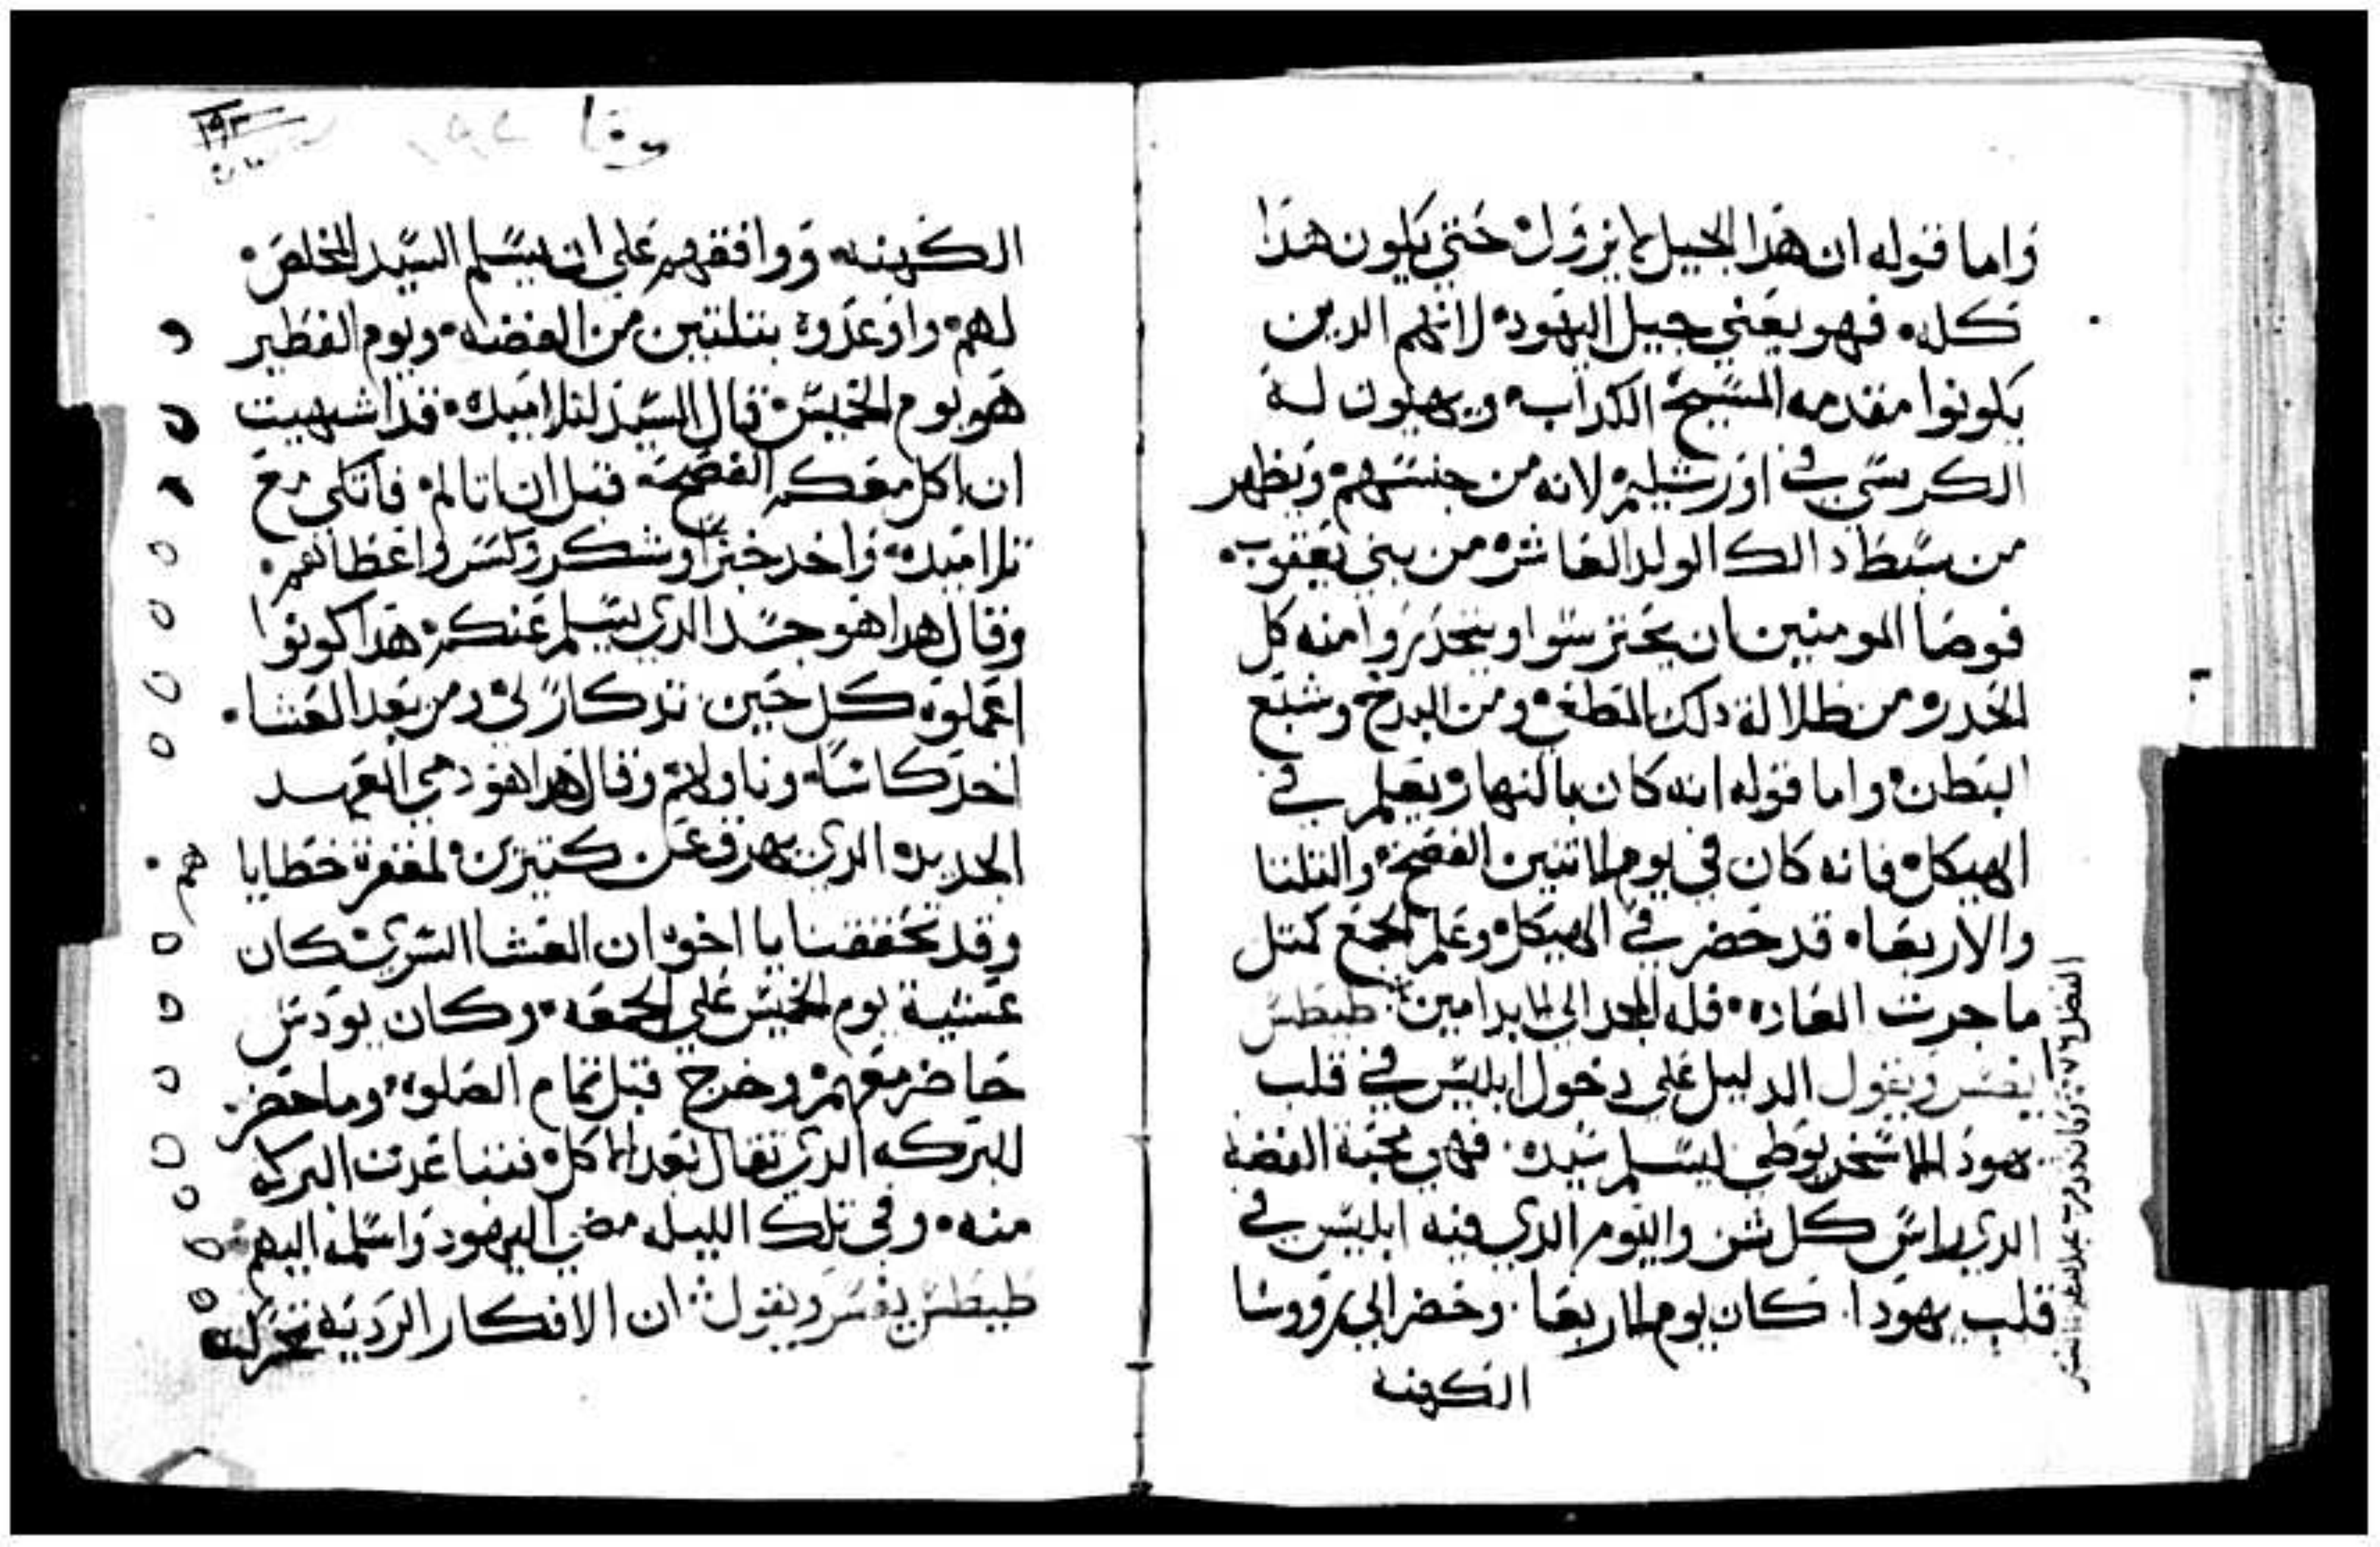 واما قوله ان هذا الجيل لا يزول حتي يكون هذا
كله فهو يعني جيل اليهود لانهم الدين
يكونوا مقدمه المسيح الكداب ويهيون له
الكرسي في اورشليم لانه من جنسهم ويظهر
من سبط دالك الولد العاشر من بني يعقوب
فوصا المومنين ان يحترسوا ويتحدروا منه كل
الحدر ومن ظلالة دلك المطغي ومن البدخ وشبع
البطن واما قوله انه كان بالنهار يعلم في
الهيكل فانه كان في يوم الاتنين الفصح والتلتا
والاربعا قد حضر في الهيكل وعلم الجمع كمتل
ما جرت العاده فله المجد الي الابد امين طيطس
يفسر ويقول الدليل علي دخول ابليس في قلب
يهودا الاسخريوطي ليسلم سيده فهي محبة الفضة
الدي راس كل شر واليوم الدي فيه ابليس في
قلب يهودا كان يوم الاربعا وحضر الي رووسا
الكهنه
لوقا
١٩٣
الكهنه ووافقهم علي ان يسلم السيد المخلص
لهم واوعدوه بتلتين من الفضه ويوم الفطير
هو يوم الخميس قال السيد لتلاميده قد اشهيت
ان اكل معكم الفصح قبل ان اتالم فاتكي مع
تلاميده واخد خبزا وشكر وكسر واعطاهم
وقال هدا هو جسد الدي يسلم عنكم هدا كونوا
اعملوه كل حين تدكار لي ومن بعد العشا
اخد كاسا وناولهم وقال هدا هو دمي العهد
الجديد الدي يهرق عن كتيرين لمغفرة خطاياهم
وقد تحققنا يا اخوه ان العشا السري كان
عشية يوم الخميس علي الجمعه وكان يودس
حاضر معهم وخرج قبل تمام الصلوه وما حضر
البركه الدي تقال بعد الاكل فبنا عدت البركه
منه وفي تلك الليله مضي اليهود واسلمه اليهم
طيطس يفسر ويقول ان الافكار الرديه تتحرك